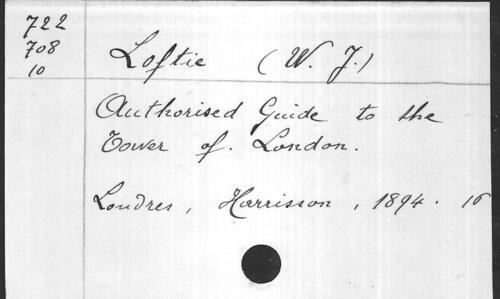 722
708
10
Loftie (W. J.)
Authorised Guide to the
Tower of. London.
Londres, Harrisson, 1894. 16